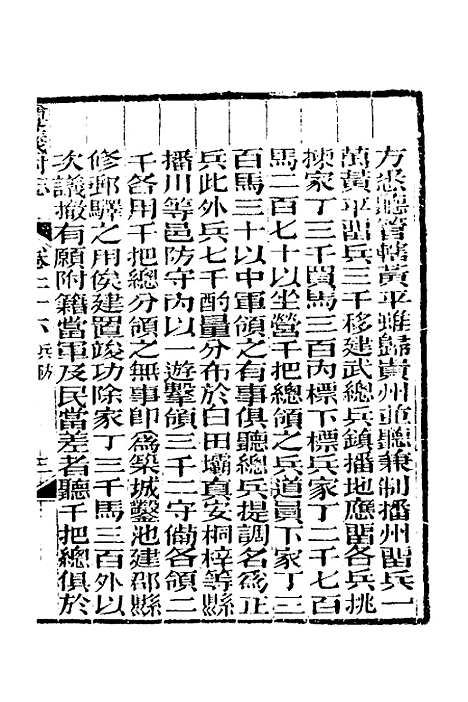 方悉聽管轄黃平雖歸貴州亦聽兼制播州畱兵一
萬黃平畱兵三千移建武總兵鎮播地應畱各兵挑
揀家丁三千買馬三百內標下標兵家丁二千七百
馬二百七十以坐營千把總領之兵道員下家丁三
百馬三十以中軍領之有事俱聽總兵提調名爲正
兵此外兵七千酌量分布於白田壩真安桐梓等縣
播川等邑防守內以一遊擊領三千二守備各領二
千各用千把總分領之無事卽爲築城鑿池建郡縣
修郵驛之用俟建置竣功除家丁三千馬三百外以
次議撤有願附籍當軍及民當差者聽千把總俱於
遵義府志 卷二十六 兵防